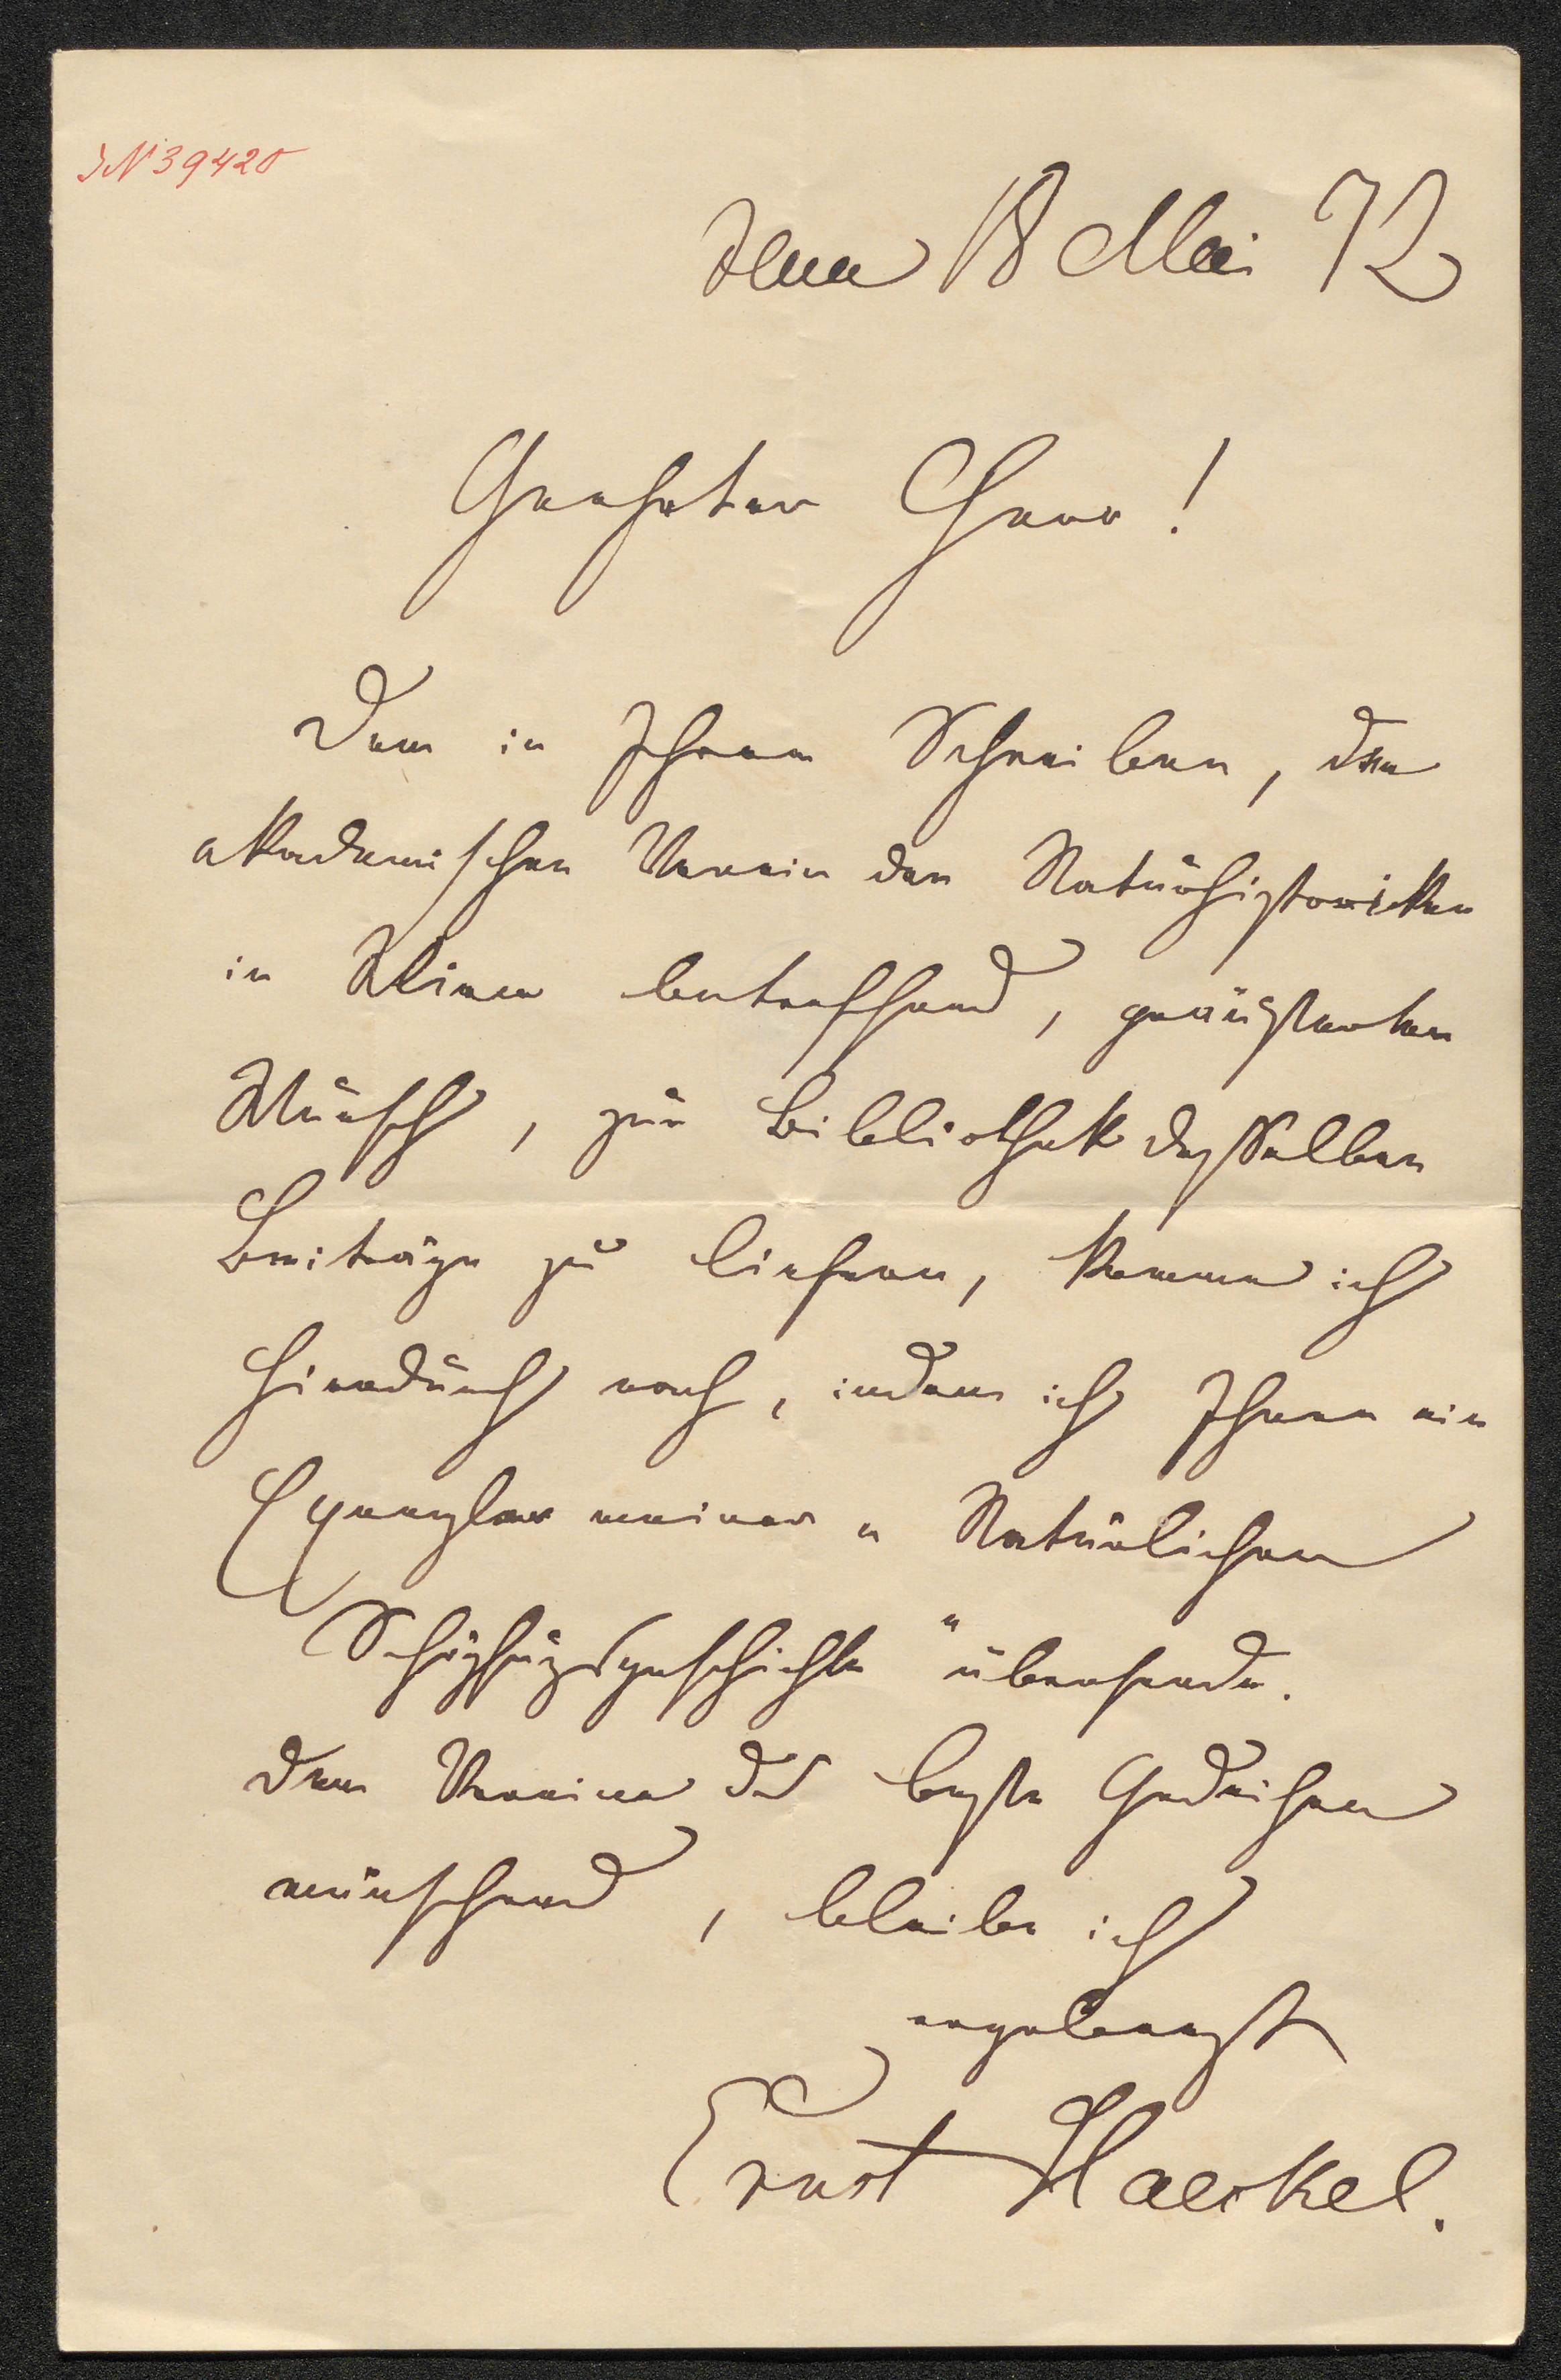 IN 39420
Jena 18 Mai 72
Geehrter Herr!
Dem in Ihrem Schreiben, den
akademischen Verein der Naturhistoriker
in Wien betreffend, geäußerten
Wunsch, zur Bibliothek desselben
Beiträge zu liefern, komme ich
hierdurch nach, indem ich Ihnen ein
Exemplar meiner „Natürlichen
Schöpfungsgeschichte“ übersende.
Dem Vereine das beste Gedeihen
wünschend, bleibe ich
ergebenst
Ernst Haeckel.